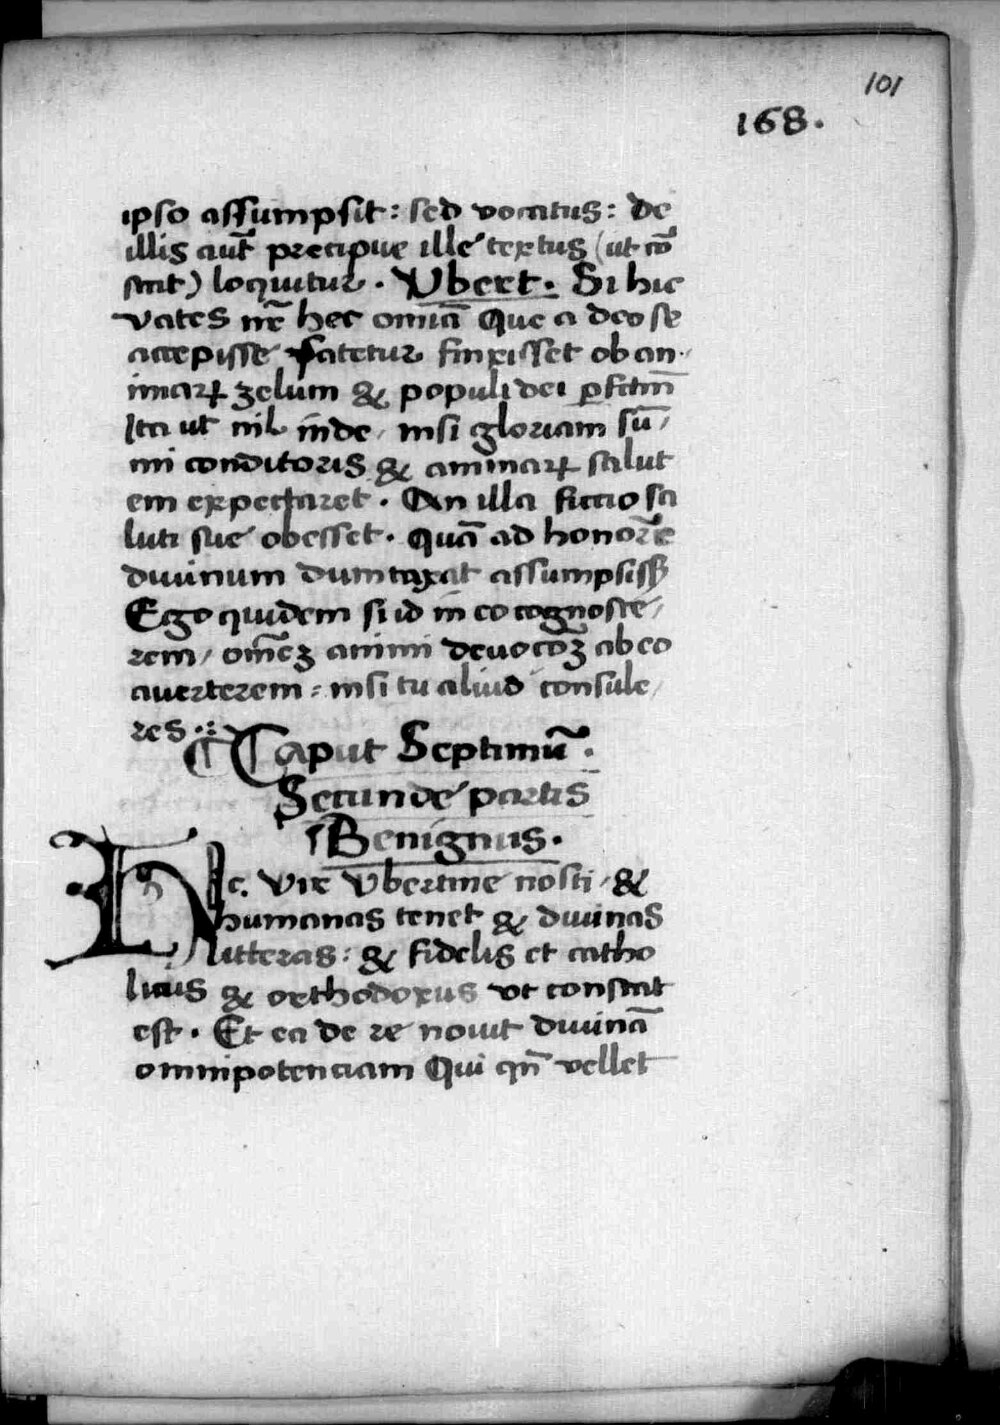 101
168.
ipso assumpsit: sed vocatus: de
illis aut̃ precipue ille textus (ut cõ
stat) loquitur. Vbert. Si hic
vates nr̃e hec omiã Que a deo se
accepisse fatetur finxisset ob an-
imarꝝ zelum & populi dei ꝑfctm̃
Ita ut nil inde, nisi gloriam sũ,
mi conditoris & animarꝝ salut
em expectaret. An illa fictio sa
luti sue obesset. Quã ad honorẽ
diuinum dumtaxat assumpsisꝫ
Ego quidem si id in eo cognosce,
rem, om̃eꝫ animi deuotõꝫ ab eo
auerterem: nisi tu aliud consule,
res.
¶ Caput Septimũ.
Secunde partis
Benignus.
HIc. Vir Vbertine nosti, &
humanas tenet & diuinas
litteras: & fidelis et catho
licus & orthodoxus vt constat
est. Et ea de re nouit diuinã
omnipotenciam Qui qñ vellet